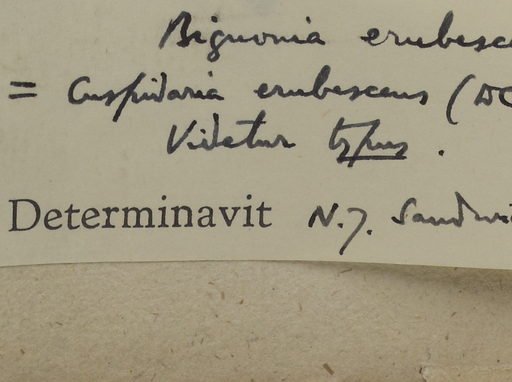 Bignonia erubesce
= Cuspidaria erubescens (DC
Videtur typus.
Determinavit N.J. Sandwi